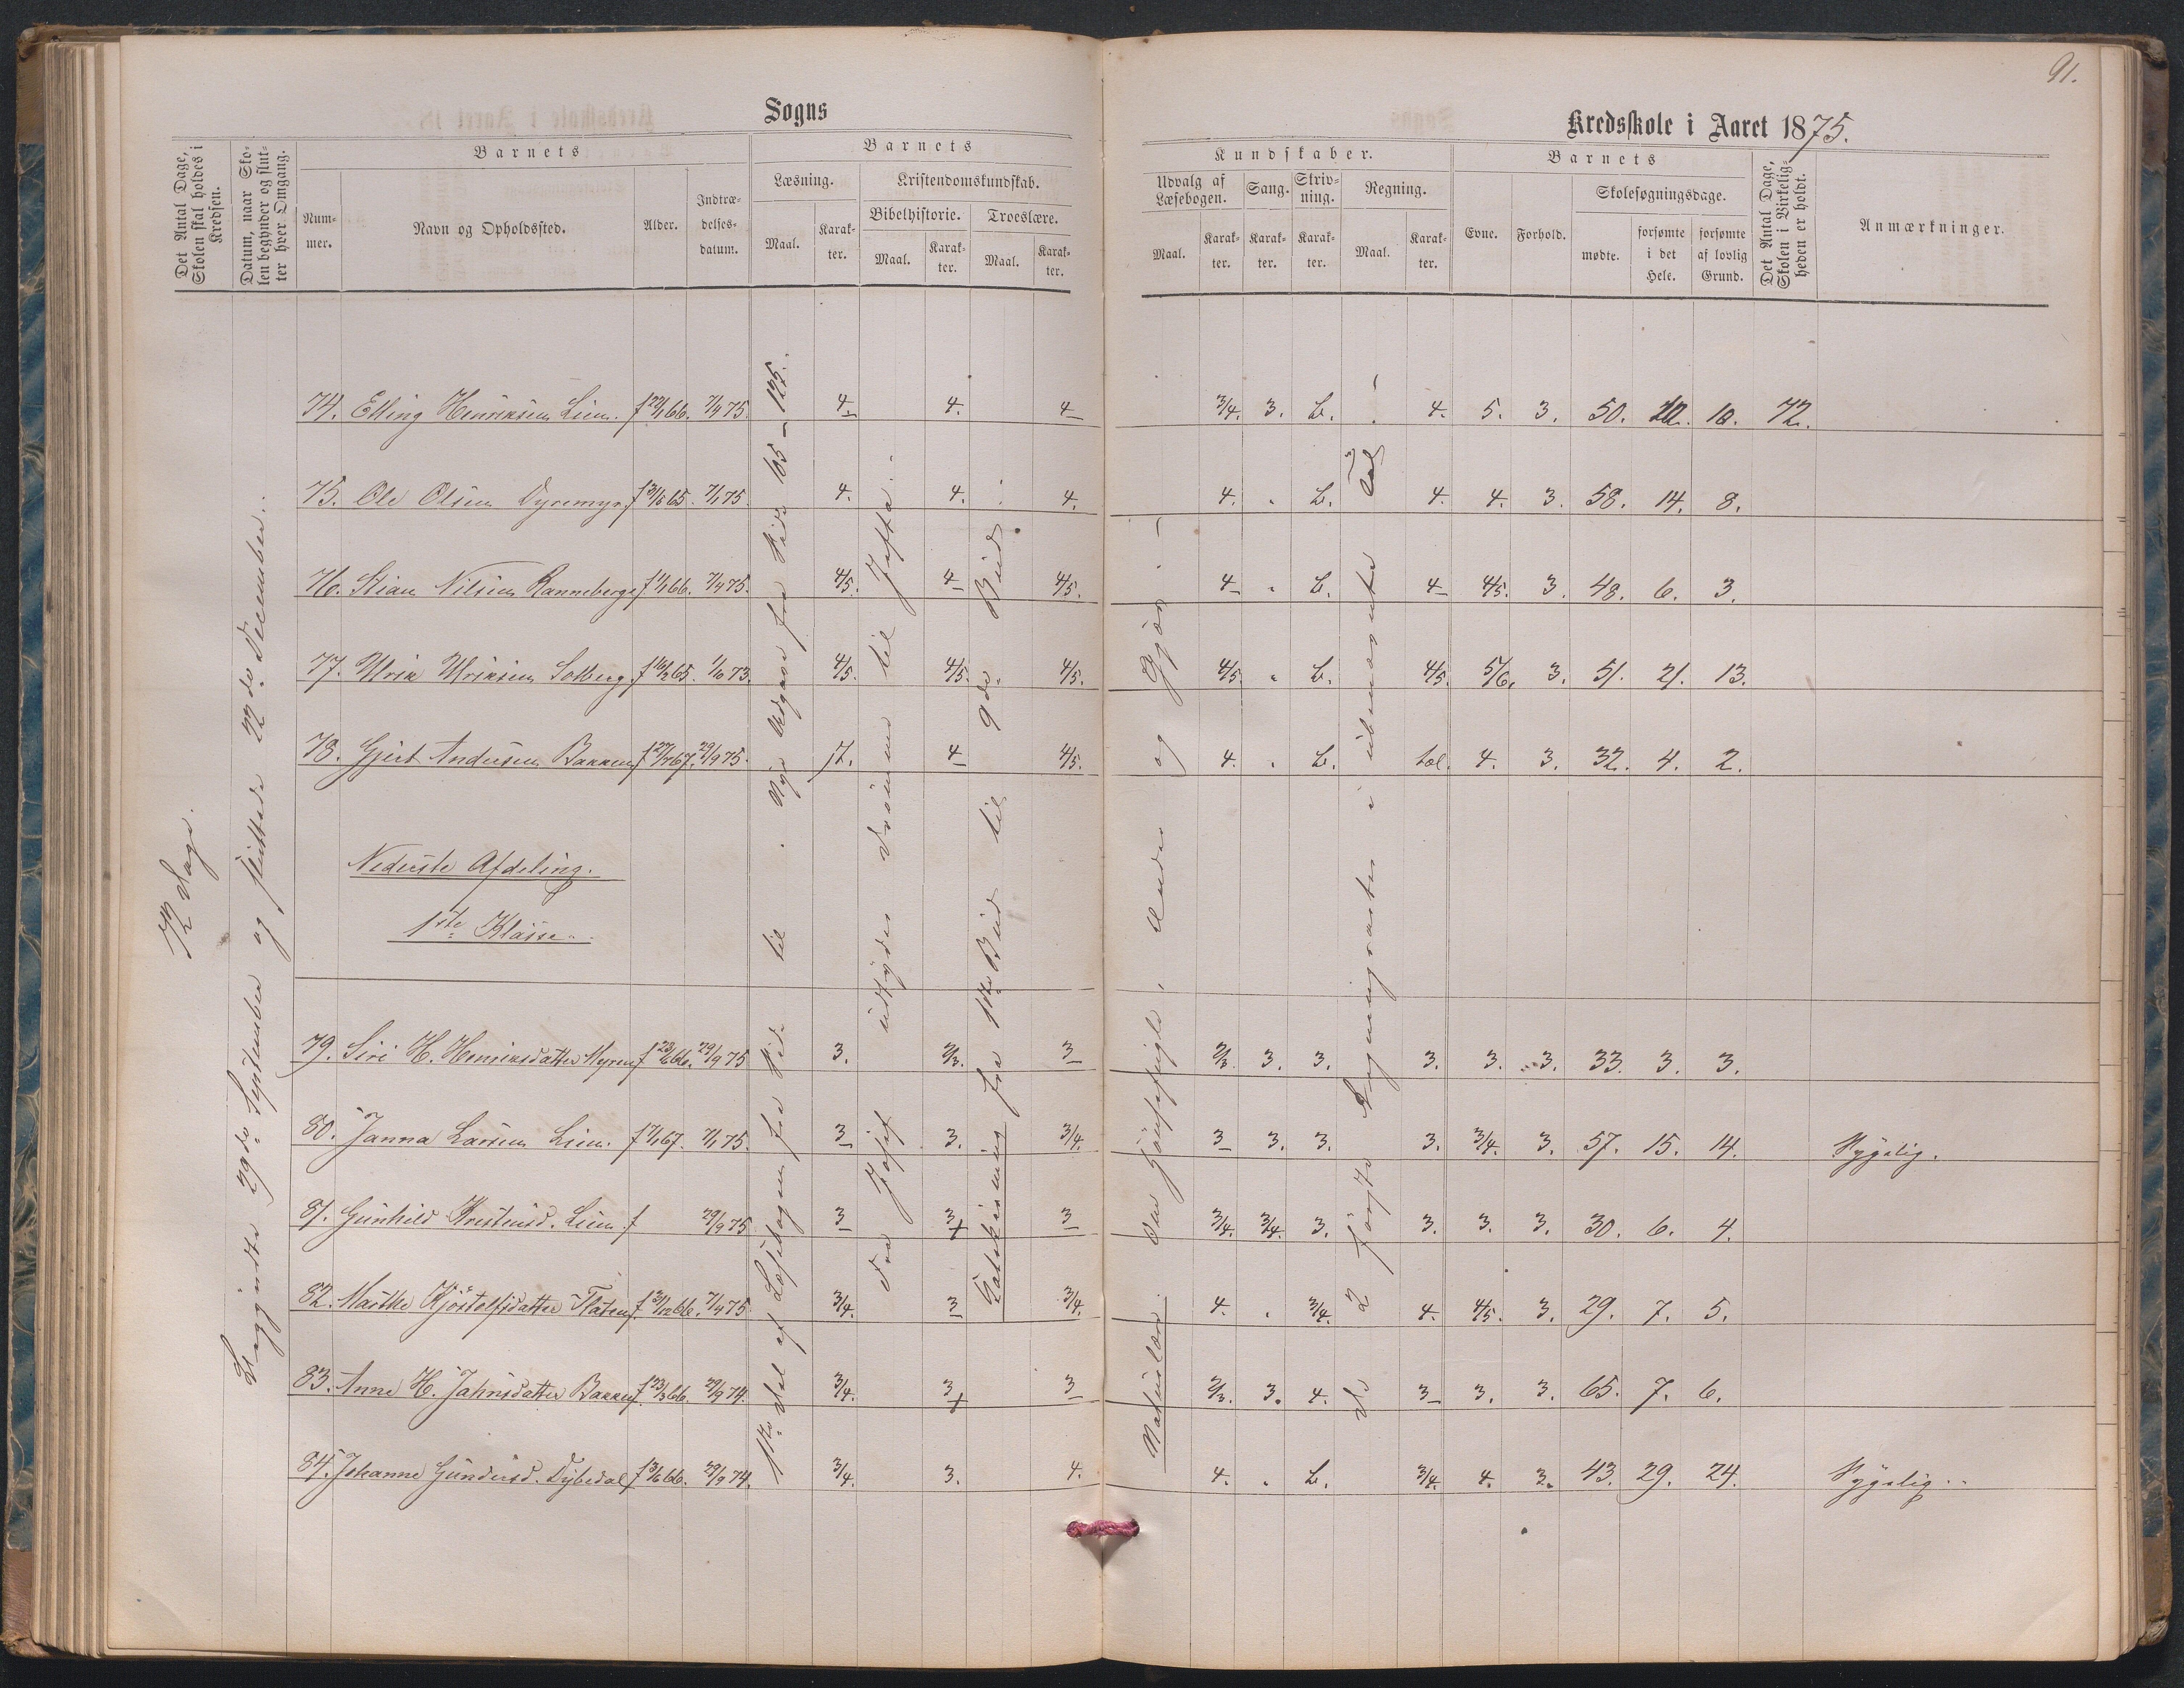 91.
Sogns
Kredsskole i Aaret 1875.
Det Antal Dage, Skolen skal holdes i Kredsen.
Datum, naar Skolen begynder og slutter hver Omgang.
Barnets
Nummer.
Navn og Opholdssted.
Alder.
Indtrædelsesdatum.
Barnets
Læsning.
Maal.
Karakter.
Kristendomskundskab.
Bibelhistorie.
Maal.
Karakter.
Troeslære.
Maal.
Karakter.
Kundskaber.
Udvalg af Læsebogen.
Maal.
Karakter.
Sang.
Karakter.
Skrivning.
Karakter.
Regning.
Maal.
Karakter.
Barnets
Evne.
Forhold.
Skolesøgningsdage.
mødte.
forsømte i det Hele.
forsømte af lovlig Grund.
Det Antal Dage, Skolen i Virkeligheden er holdt.
Anmærkninger.
72 Dage.
Begyndte 29de September og sluttede 22de December.
1ste Del af Læsebogen fra Side til . Nye Udgave fra Side 105 - 125.
Fra Josef udtyder Drømme til Jefta.
Katekisning fra 1ste Bud til 9de Bud
Naturlære. Om , Under og
De 2 første Regningsarter i ubenævnte Tal
74. Elling Henriksen Lien. f 66. 7/4 75. 4 4. 4 3/4. 3. b. 4. 5. 3. 50. 22. 10. 72.
75. Ole Olsen Dyremyr f 65. 7/1 75. 4. 4. 4. 4. . b. 4. 4. 3. 58. 14. 8.
76. Stian Nilsen Ranneberg f 66. 7/4 75. 4/5. 4 4/5. 4 . b. 4 4/5. 3. 48. 6. 3.
77. Ulrik Ulriksen Solberg. f 16/2 65. 1/10 73. 4/5. 4/5. 4/5. 4/5. . b. 4/5. 5/6. 3. 51. 21. 13.
78. Gjert Andersen Bakken f 67. 29/9 75. 4 4/5. 4. . b. 4. 3. 32. 4. 2.
Nederste Afdeling.
1ste Klasse.
79. Siri H. Henriksdatter Myren f 66. 29/9 75 3. 2/3. 3 2/3. 3. 3. 3. 3. 3. 33. 3. 3.
80. Janna Larsen Lien. f 67. 7/1 75. 3 3. 3/4. 3 3. 3. 3. 3/4. 3. 57. 15. 14. Sygelig.
81. Gunhild Kristensd. Lien. f 29/9 75 3 3+ 3 3/4. 3/4. 3. 3. 3. 3. 30. 6. 4.
82. Marthe Kjöstolfsdatter Flaten f 66. 7/4 75. 3/4. 3 3/4. 4. . 3/4. 4. 4/5. 3. 29. 7. 5.
83. Anne H. Jahnsdatter Bakken f 23/3 66. 29/9 74. 3/4. 3+ 3 2/3. 3. 4. 3 3. 3. 65. 7. 6.
84. Johanne Gundersd. Dybedal f 66. 29/9 74. 3/4. 3. 4. 4. . b. 3/4. 4. 3. 43. 29. 24. Sygelig.